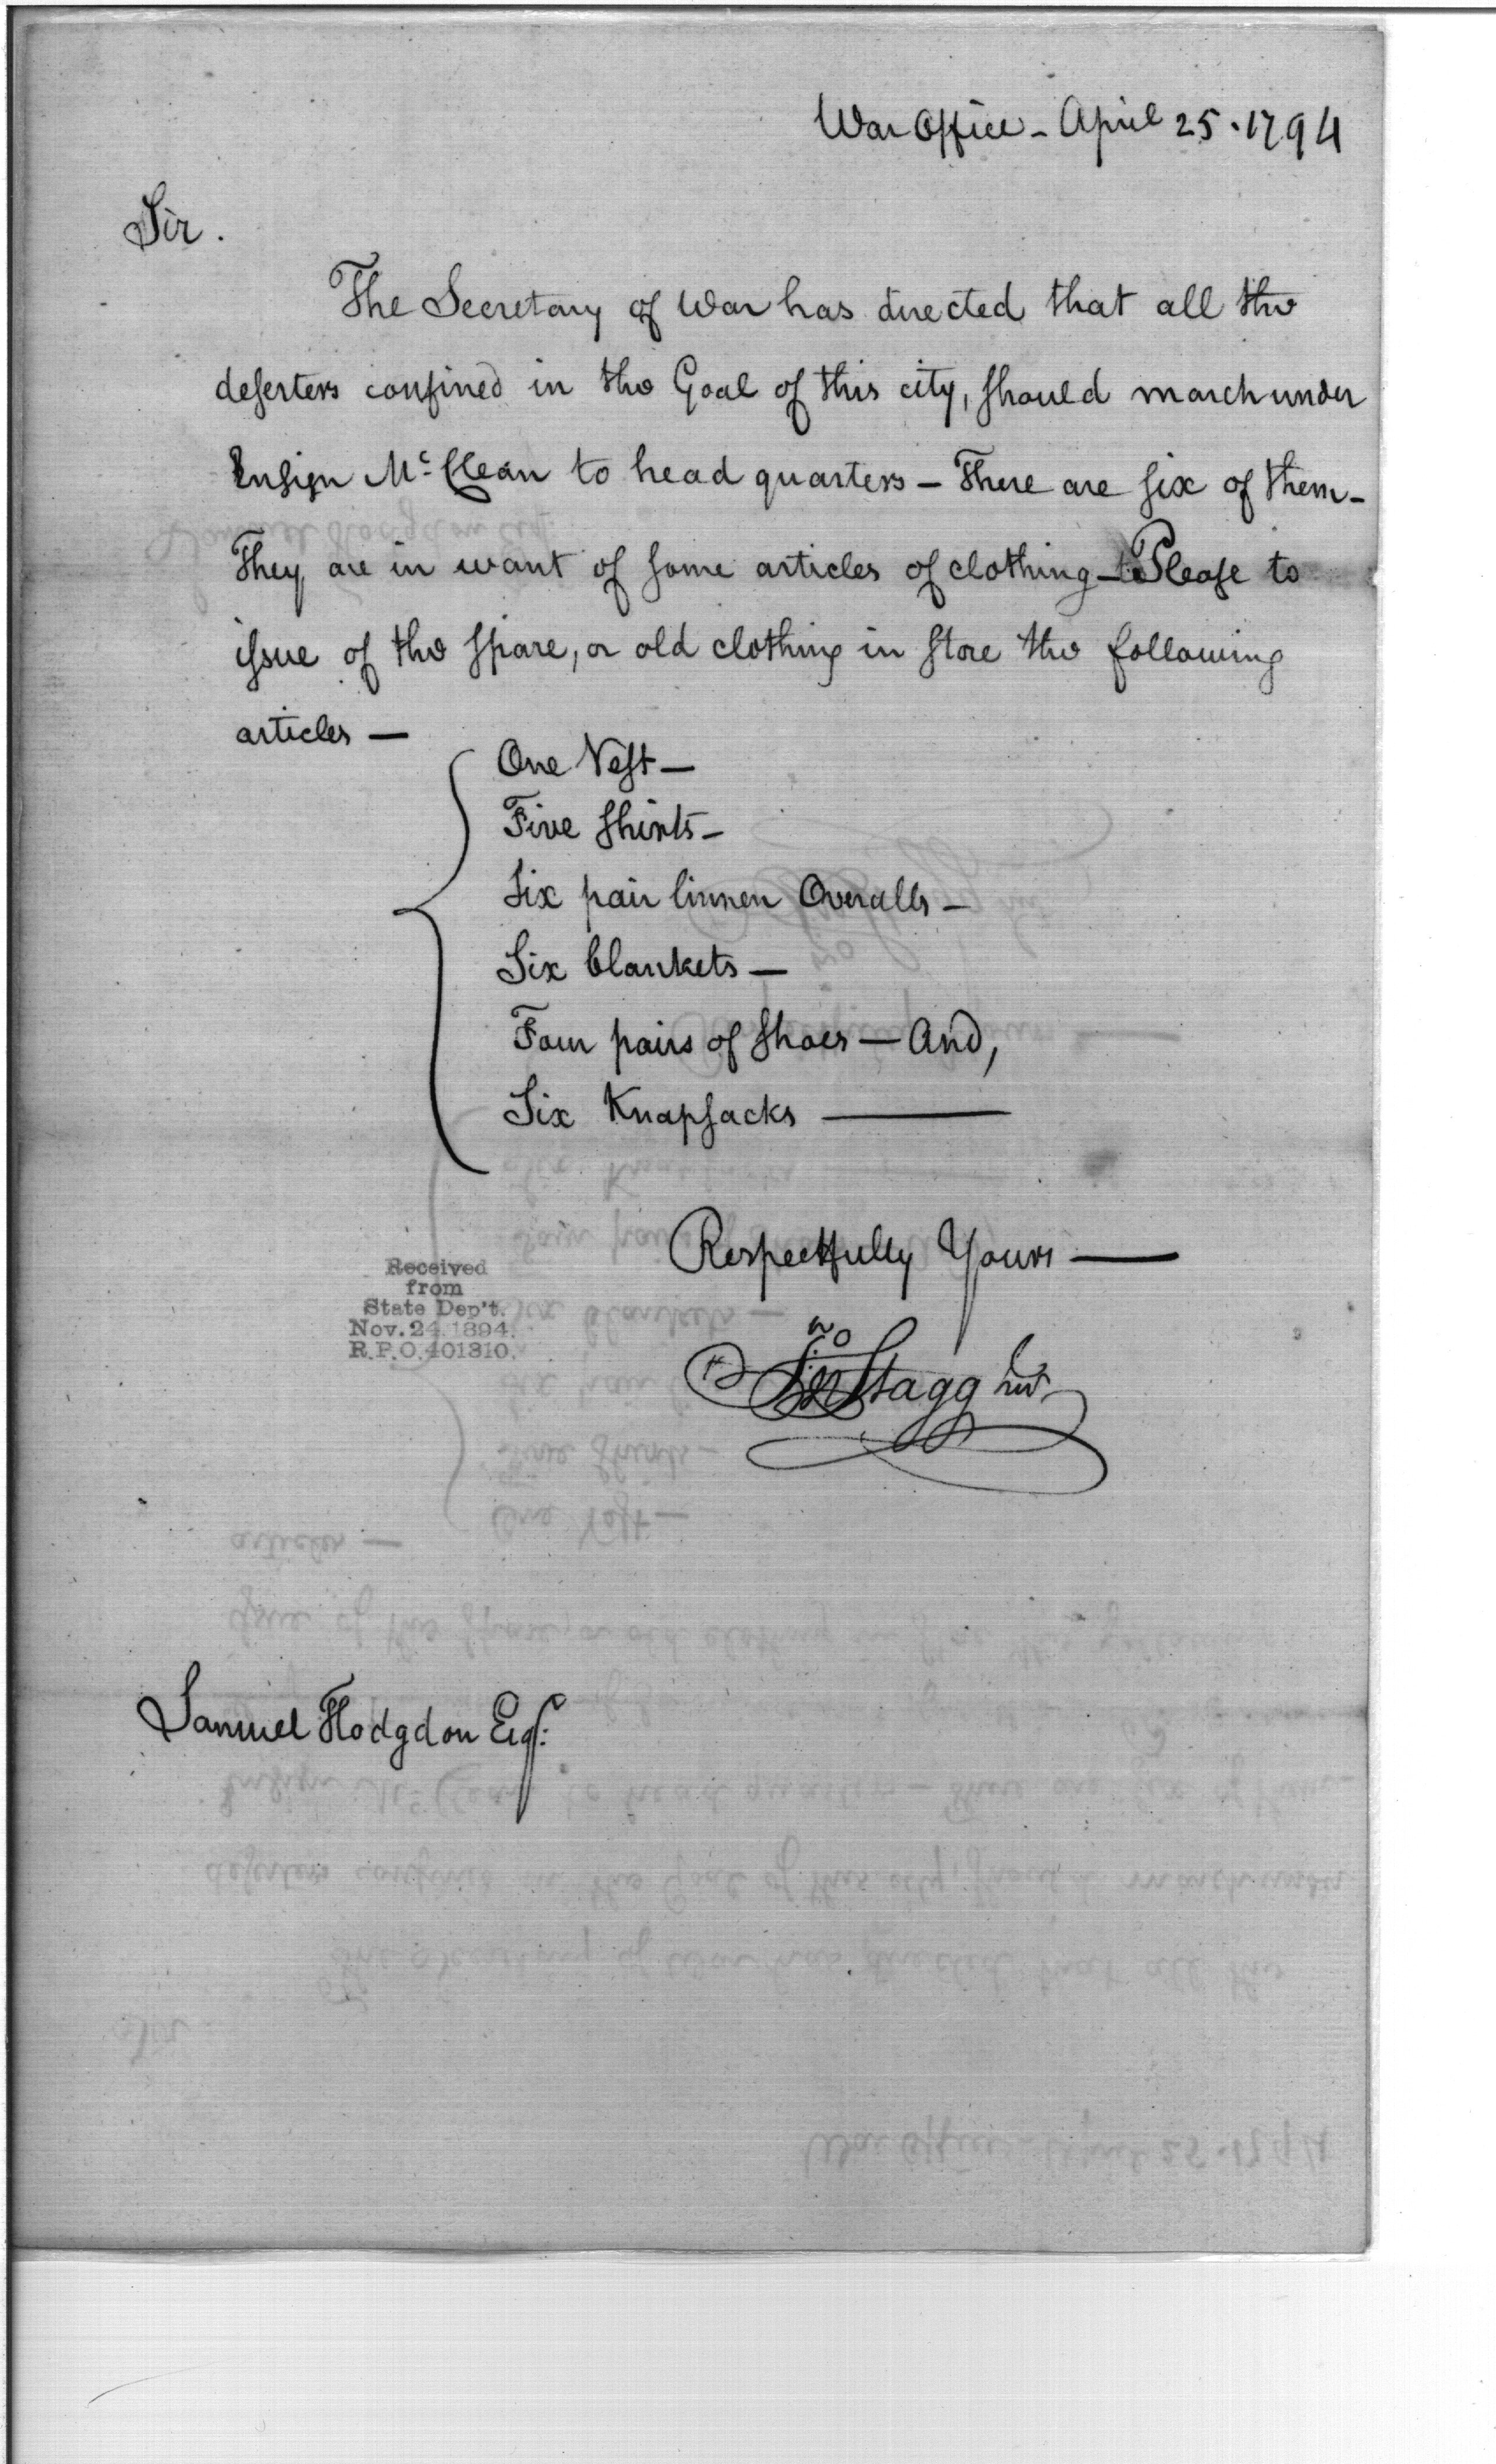 War Office - April 25. 1794
Sir.
The Secretary of War has directed that all the
deserters confined in the Goal of this city, should march under
Ensign Mc. Clean to head quarters - There are six of them -
They are in want of some articles of clothing - Please to
issue of the spare, or old clothing in store the following
articles -
One Vest -
Five shirts -
Six pair linnen Overalls -
Six blankets -
Four pairs of shoes - And,
Six Knapsacks -
Respectfully Yours -
Jno Stagg Jur.
Received
from
State Dep't.
Nov. 24 1894.
R.P.O. 401310.
Samuel Hodgdon Esqr.